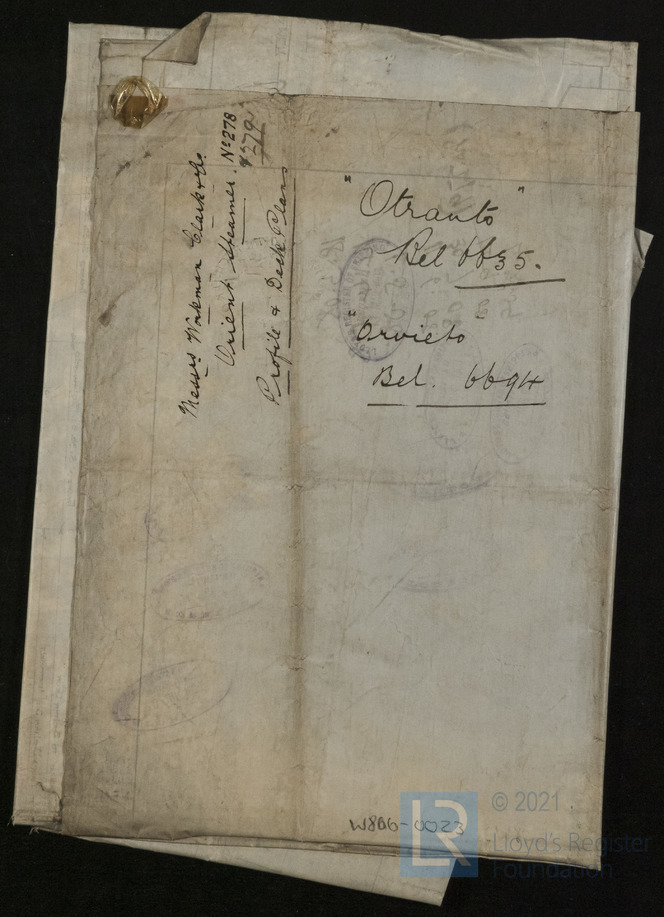 Messrs Workman Clark & Co.
Orient Steamer. No 278
& 279
Profile & Deck Plans
"Otranto"
Bel 6635.
"Orvieto
Bel. 6694
W866-0023
© 2021
Lloyd's Register
Foundation
LR